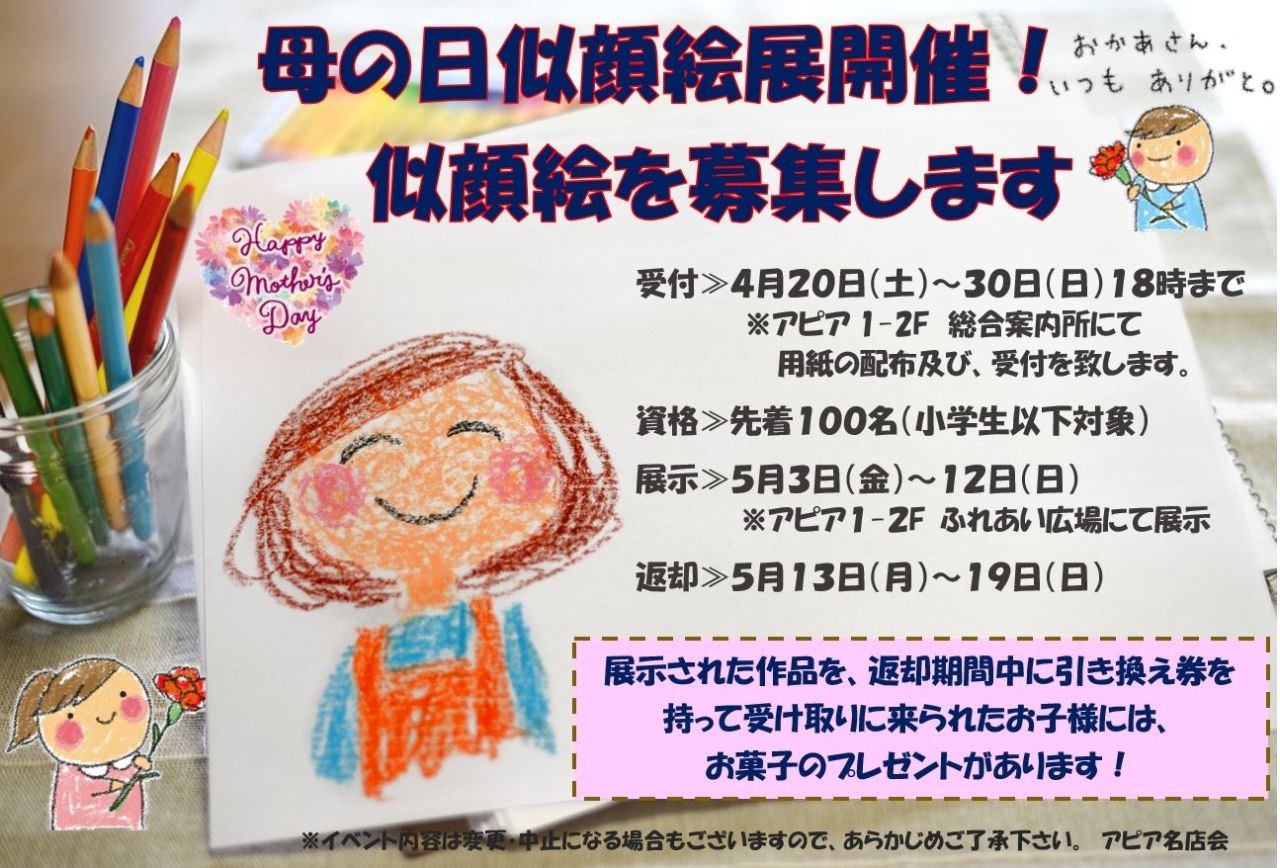 母の日似顔絵展開催！
おかあさん．
いつも ありがと。
似顔絵を募集します
Happy
Mother's
Day
受付≫4月20日（土）～30日（日）18時まで
※アピア1-2F 総合案内所にて
用紙の配布及び、受付を致します。
資格≫先着100名（小学生以下対象）
展示≫5月3日（金）～12日（日）
※アピア1-2F ふれあい広場にて展示
返却≫5月13日（月）～19日（日）
展示された作品を、返却期間中に引き換え券を
持って受け取りに来られたお子様には、
お菓子のプレゼントがあります！
※イベント内容は変更・中止になる場合もございますので、あらかじめご了承下さい。 アピア名店会